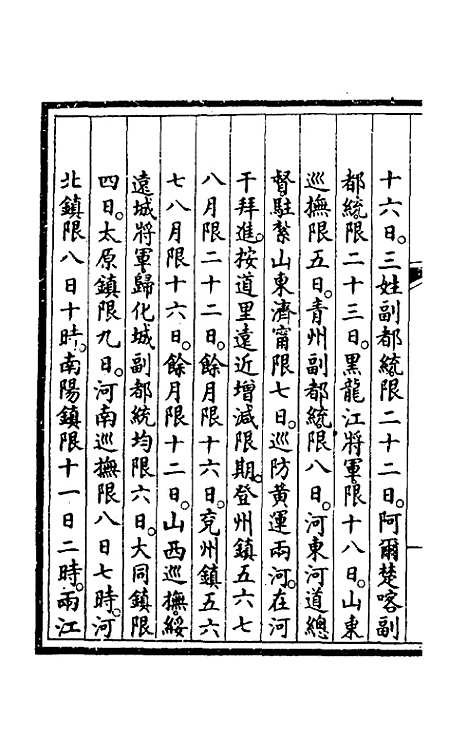 十六日。三姓副都統限二十二日。阿爾楚喀副
都統限二十三日。黑龍江將軍限十八日。山東
巡撫限五日。青州副都統限八日。河東河道總
督駐紮山東濟甯限七日。巡防黃運兩河。在河
干拜進。按道里遠近增減限期。登州鎮五六七
八月限二十二日。餘月限十六日。兗州鎮五六
七八月限十六日。餘月限十二日。山西巡撫。綏
遠城將軍歸化城副都統均限六日。大同鎮限
四日。太原鎮限九日。河南巡撫限八日七時。河
北鎮限八日十時。南陽鎮限十一日二時。兩江